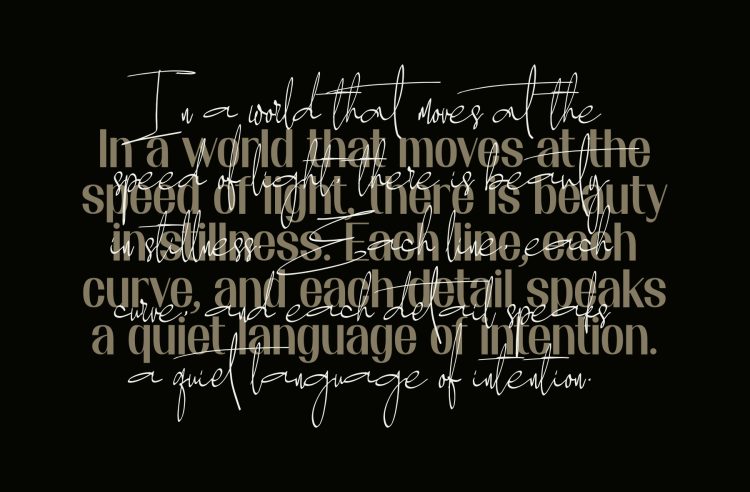 In a world that moves at the
In a world that moves at the
speed of light, there is beauty
speed of light, there is beauty
in stillness. Each line, each
in stillness. Each line, each
curve, and each detail speaks
curve, and each detail speaks
a quiet language of intention.
a quiet language of intention.